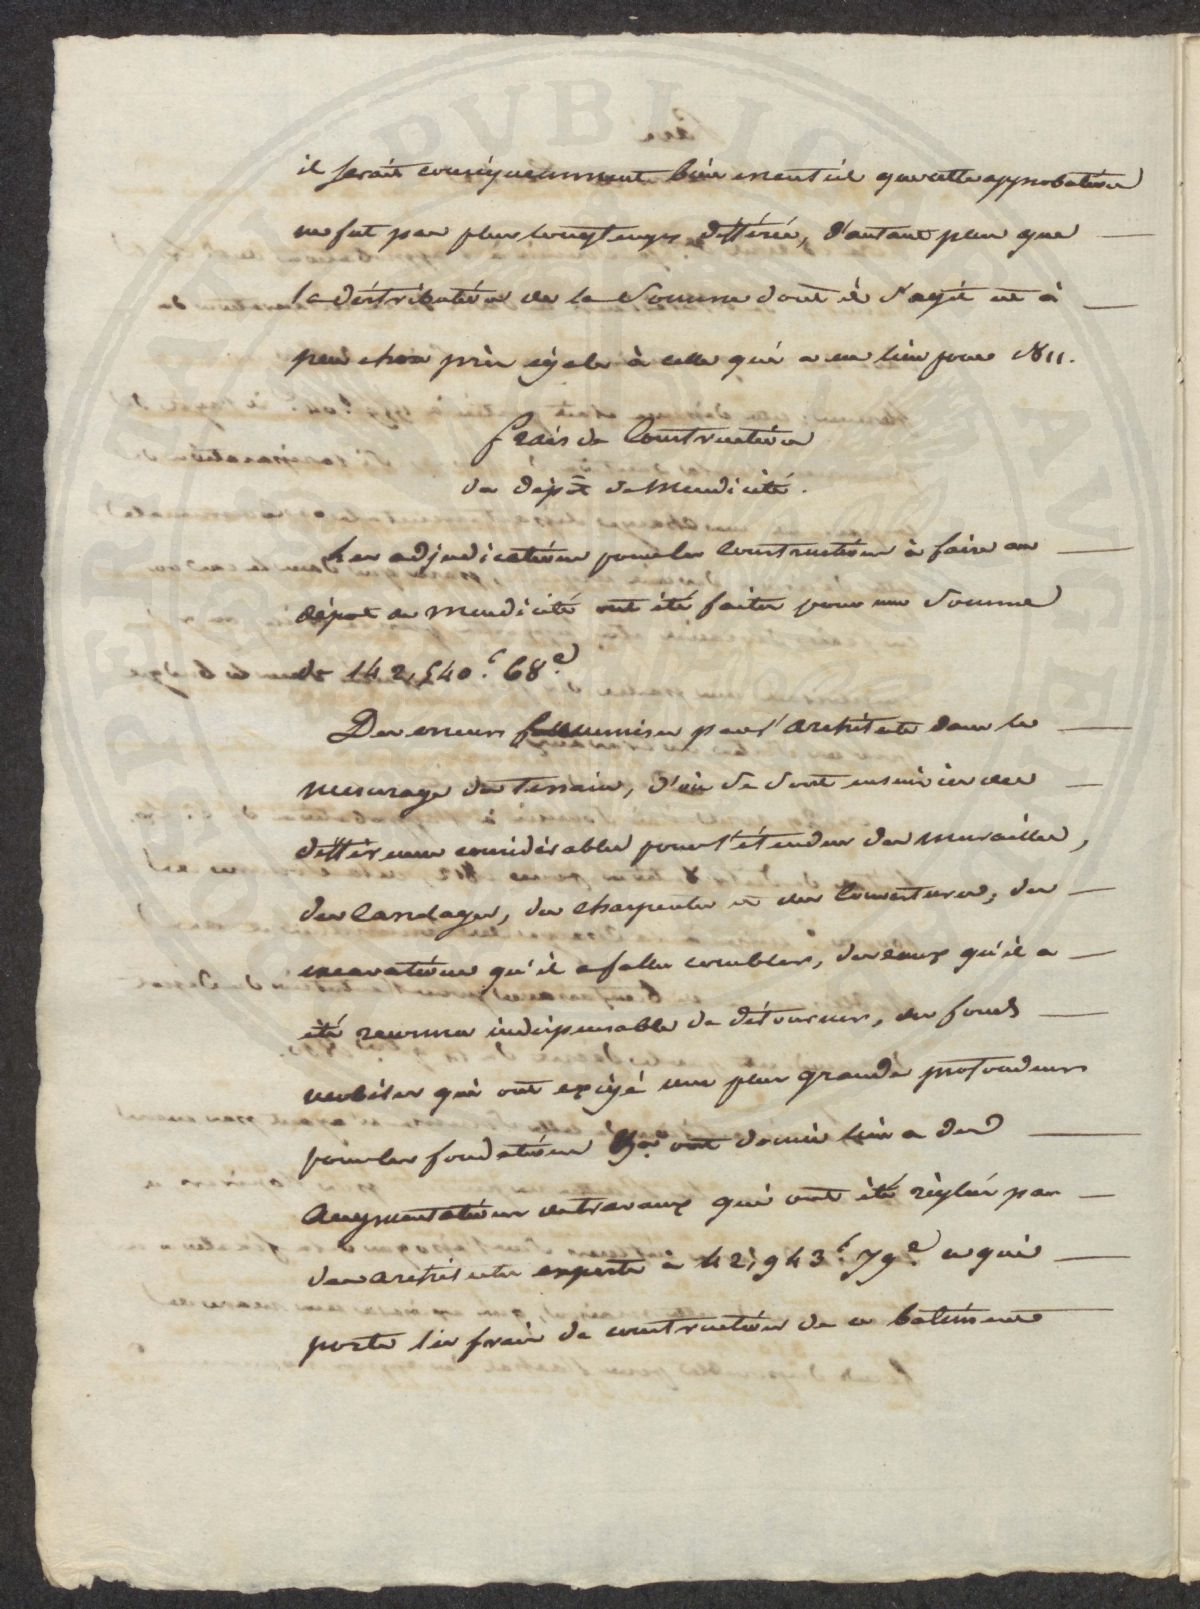 il serait conséquemment bien essentiel que cette approbation
ne fut pas plus longtemps différée, d'autant plus que
la distribution de la Somme dont il s'agit est à
peu chose près égale à celle qui a eu lieu pour 1811.
frais de Construction
du dépôt de Mendicité.
Les adjudications pour les Constructions à faire au
dépot de Mendicité ont été faites pour une Somme
de 142,540.f 68.c
Des erreurs commises par l'architecte dans le
mesurage du terrain, d'où se sont ensuivies des
différences considérables pour l'étendue des murailles,
des Carrelages, des charpentes et des Couvertures, des
excavations qu'il a fallu combler, des eaux qu'il a
été reconnu indispensable de détourner, des fonds
mobiles qui ont exigé une plus grande profondeur
pour les fondations &a. ont donné lieu a des
augmentations de travaux qui ont été réglés par
des architectes experts à 42,943.f 79.c ce qui
porte les frais de construction de ce batiment